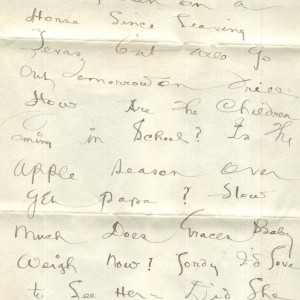 on a
Horse Since Leaving
Texas but will go
Out Tomorrow on
How Are the Children
in School? Is the
Apple Season Over
Yet Papa? Slow
Much Does Graces Baby
Weigh Now? I'd love
to See Her - Did She